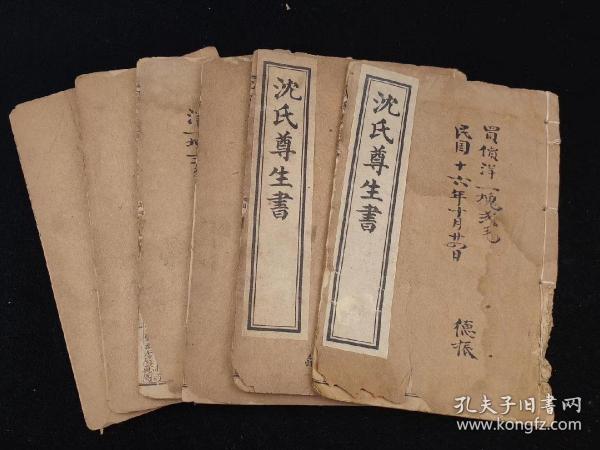 買價洋一塊弍毛
民国十六年十月廿四日
德振
沈氏尊生書
沈氏尊生書
孔夫子旧书网
www.kongfz.com